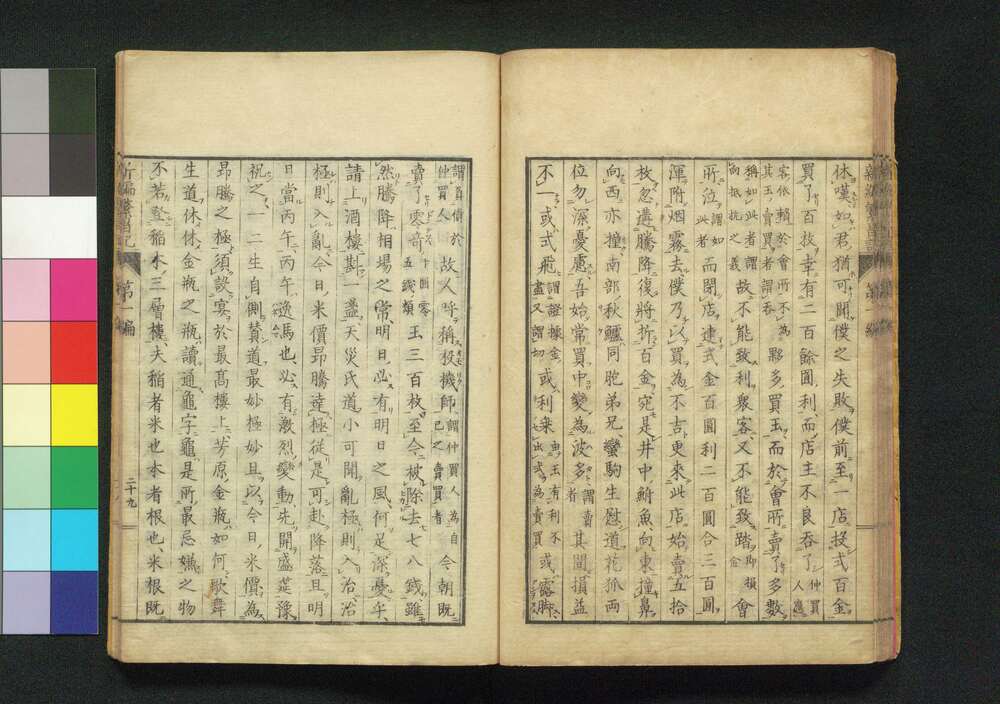 休嘆如君猶可聞僕之失敗僕前至一店投式百金
買了百枚幸有二百餘圓利而店主不良吞了仲買人
客依賴於會所不為其玉賣買者謂吞夥多買玉而於會所賣了多數
稱如此者謂向抵抗之義故不能致利衆客又不能致踏即損金會
所泣謂如此者而閉店逮式金百圓利二百圓合三百圓
渾附烟霧去僕乃以買為不吉更來此店始賣五拾
枚忽遭騰降復將折百金宛是井中鮒魚向東撞鼻
向西亦撞南部秋鱸同胞弟兄蠻駒生慰道花狐兩
位勿深憂慮吾始常買中變為波多謂賣者其間損益
不一或式飛謂證據金盡又謂切或利來或為賣買或露脚
謂直價於仲買人故人呼稱投機師謂仲買人為自己之賣買者今朝既
賣了零奇十圓零五錢類玉三百枚至今被除去七八錢雖
然騰降相場之常明日必有明日之風何足深憂乎
請上酒樓斟一盞天災氏道小可聞亂極則入治治
極則入亂今日米價昂騰達極從是可赴降落且明
日當丙午丙午逸馬也必有激烈變動先開盛筵豫
祝之一二生自側賛道最妙極妙且以今日米價為
昂騰之極須設宴於最高樓上芳原金瓶如何歌舞
生道休休金瓶之瓶讀通龜字龜是所最忌嫌之物
不若登稻本三層樓夫稻者米也本者根也米根既
第一編
二十九